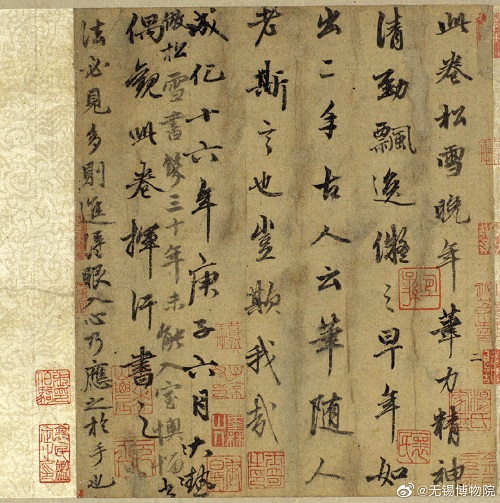 此卷松雪晚年筆力精神
清勁飄逸儗之早年如
出二手古人云筆隨人
老斯言也豈欺我哉
成化十六年庚子六月大熱
偶觀此卷揮汗書之
倣松雪書幾三十年未能入室
法必見多則進得眼入心乃應之於手也
@无锡博物院